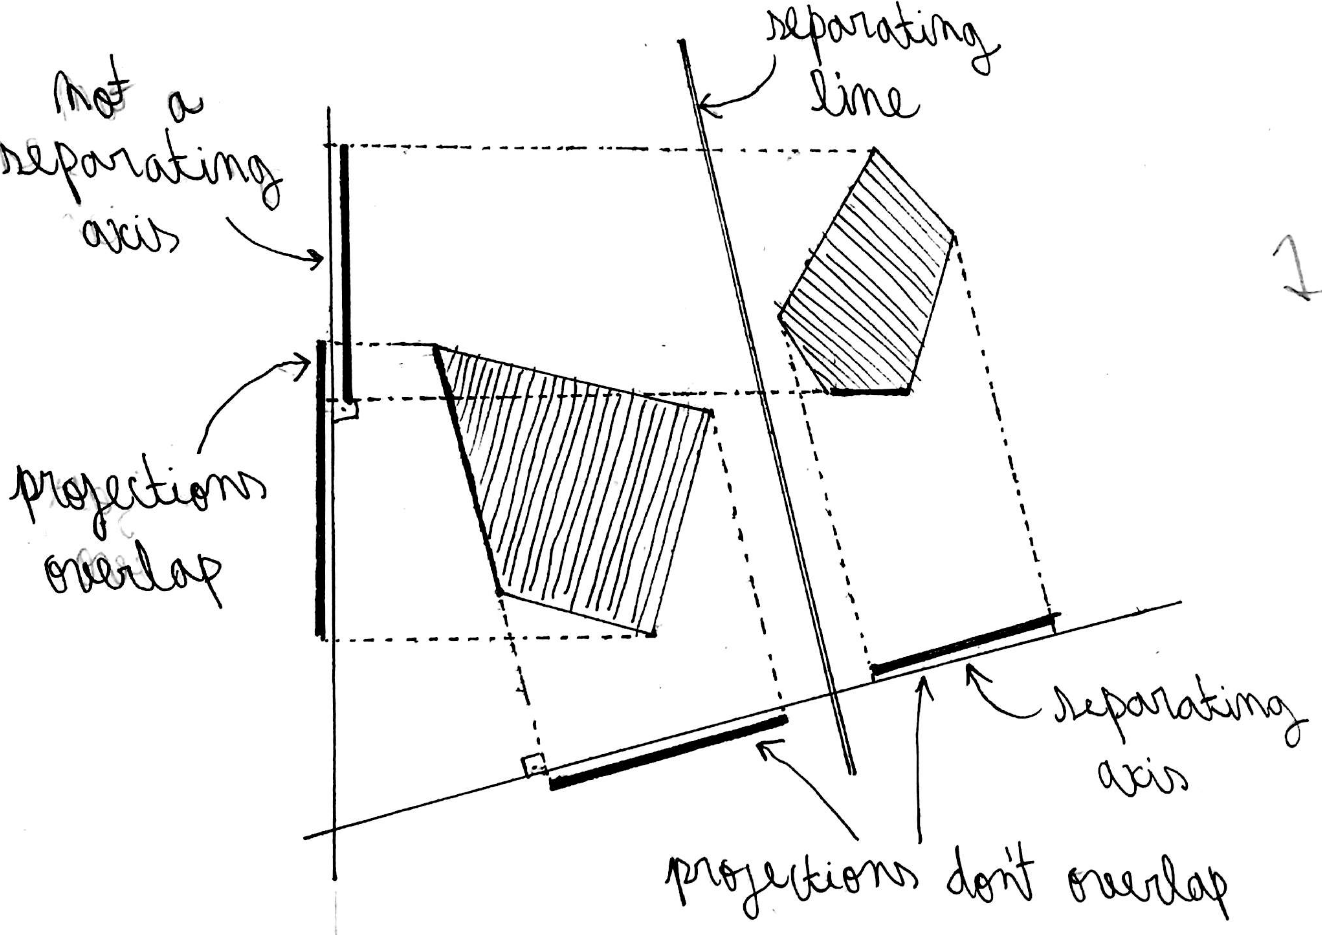 separating
line
not a
separating
axis
projections
overlap
separating
axis
projections don't overlap
1